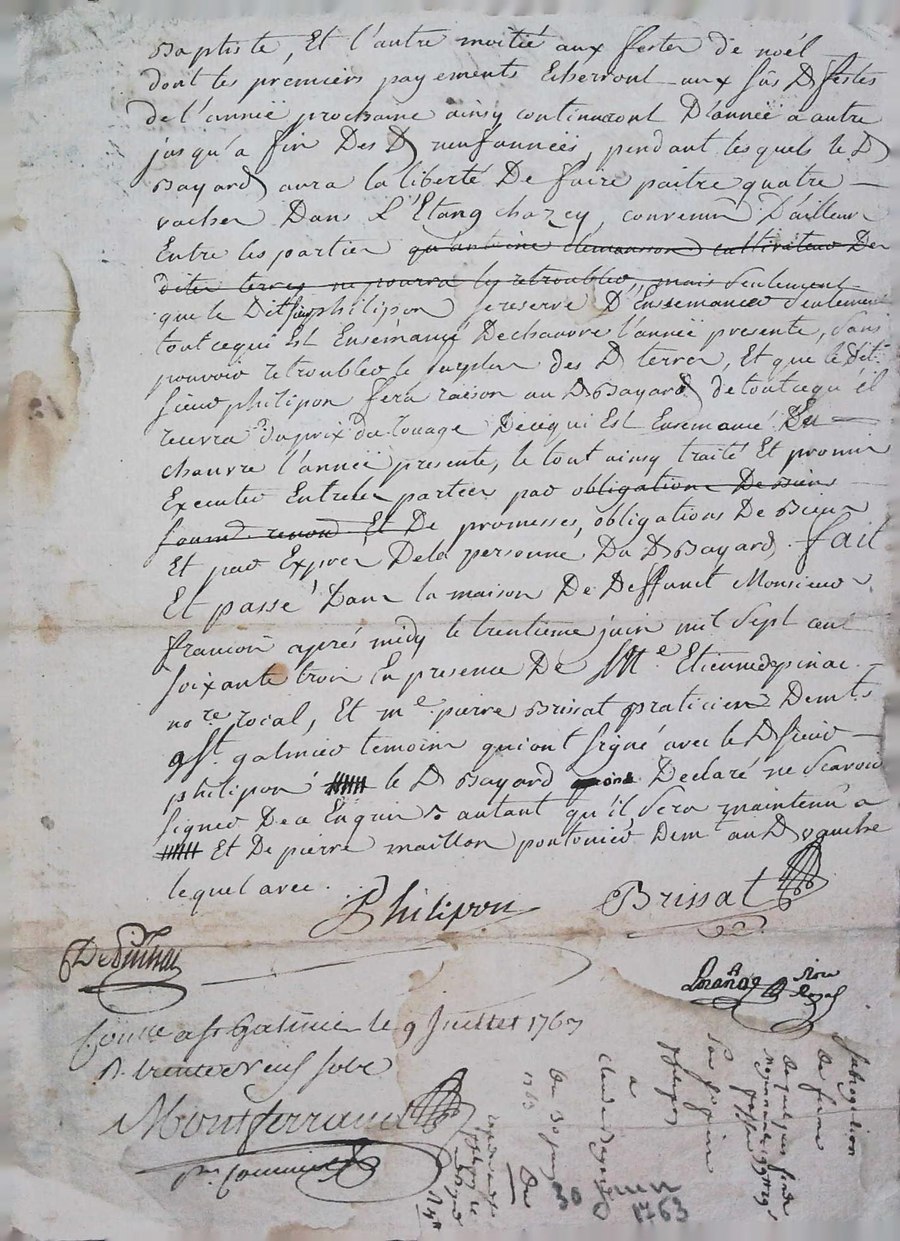 Baptiste, Et l'autre moitié aux festes de noél
dont les premiers payements Echerront aux sus D festes
de l'anneé prochaine ainsy continueront D'anneé a autre
jusqu'a fin Des D neuf anneés, pendant lesquels le D
Bayard aura la liberté De faire paitre quatre
vaches Dans L'Etang chazey, convenu D'ailleur
Entre les parties qu'antoine cultivateur Des
dites terres ne pourra les retroubler, mais Seulement
que le Dit sieur philipon se reserve D'Ensemancer Seulement
tout cequi Est Ensémancé Dechanvre l'anneé presente, Sans
pouvoir retroubler le surplus des D terres, Et que le Dit
sieur philipon fera raison au D Bayard de toutcequ'il
recevra Du prix du louage Decequi Est Ensemancé De
chanvre l'anneé presente, le tout ainsy traité Et promis
Executer Entreles parties par obligations De biens
Et De promesses, obligations De Biens
Et par Expres Dela personne Du D Bayard. fait
Et passé Dans la maison De Deffunct Monsieur
françon aprés midy le trentiéme juin mil Sept cent
soixante trois En presence De Me Etienne depinac
nore royal, Et me pierre Brissat praticien Demts
a St. galmier temoins qui ont signé avec le D sieur
philipon le D Bayard Declaré ne Scavoir
signer De ce Enquis autant qu'il Sera maintenu a
Et De pierre maillon pontonier Demt au D
lequel avec.
Philipon Brissat
DePinac
nore
royal
Conllé a St Galmier le 9 Juillet 1763
R. trente neuf sols
Montferrand
Subrogation
de ferme
passée
Par sieur
philipon
a
Claude Bayard
Du 30 juin
1763
Du
30 Juin
1763